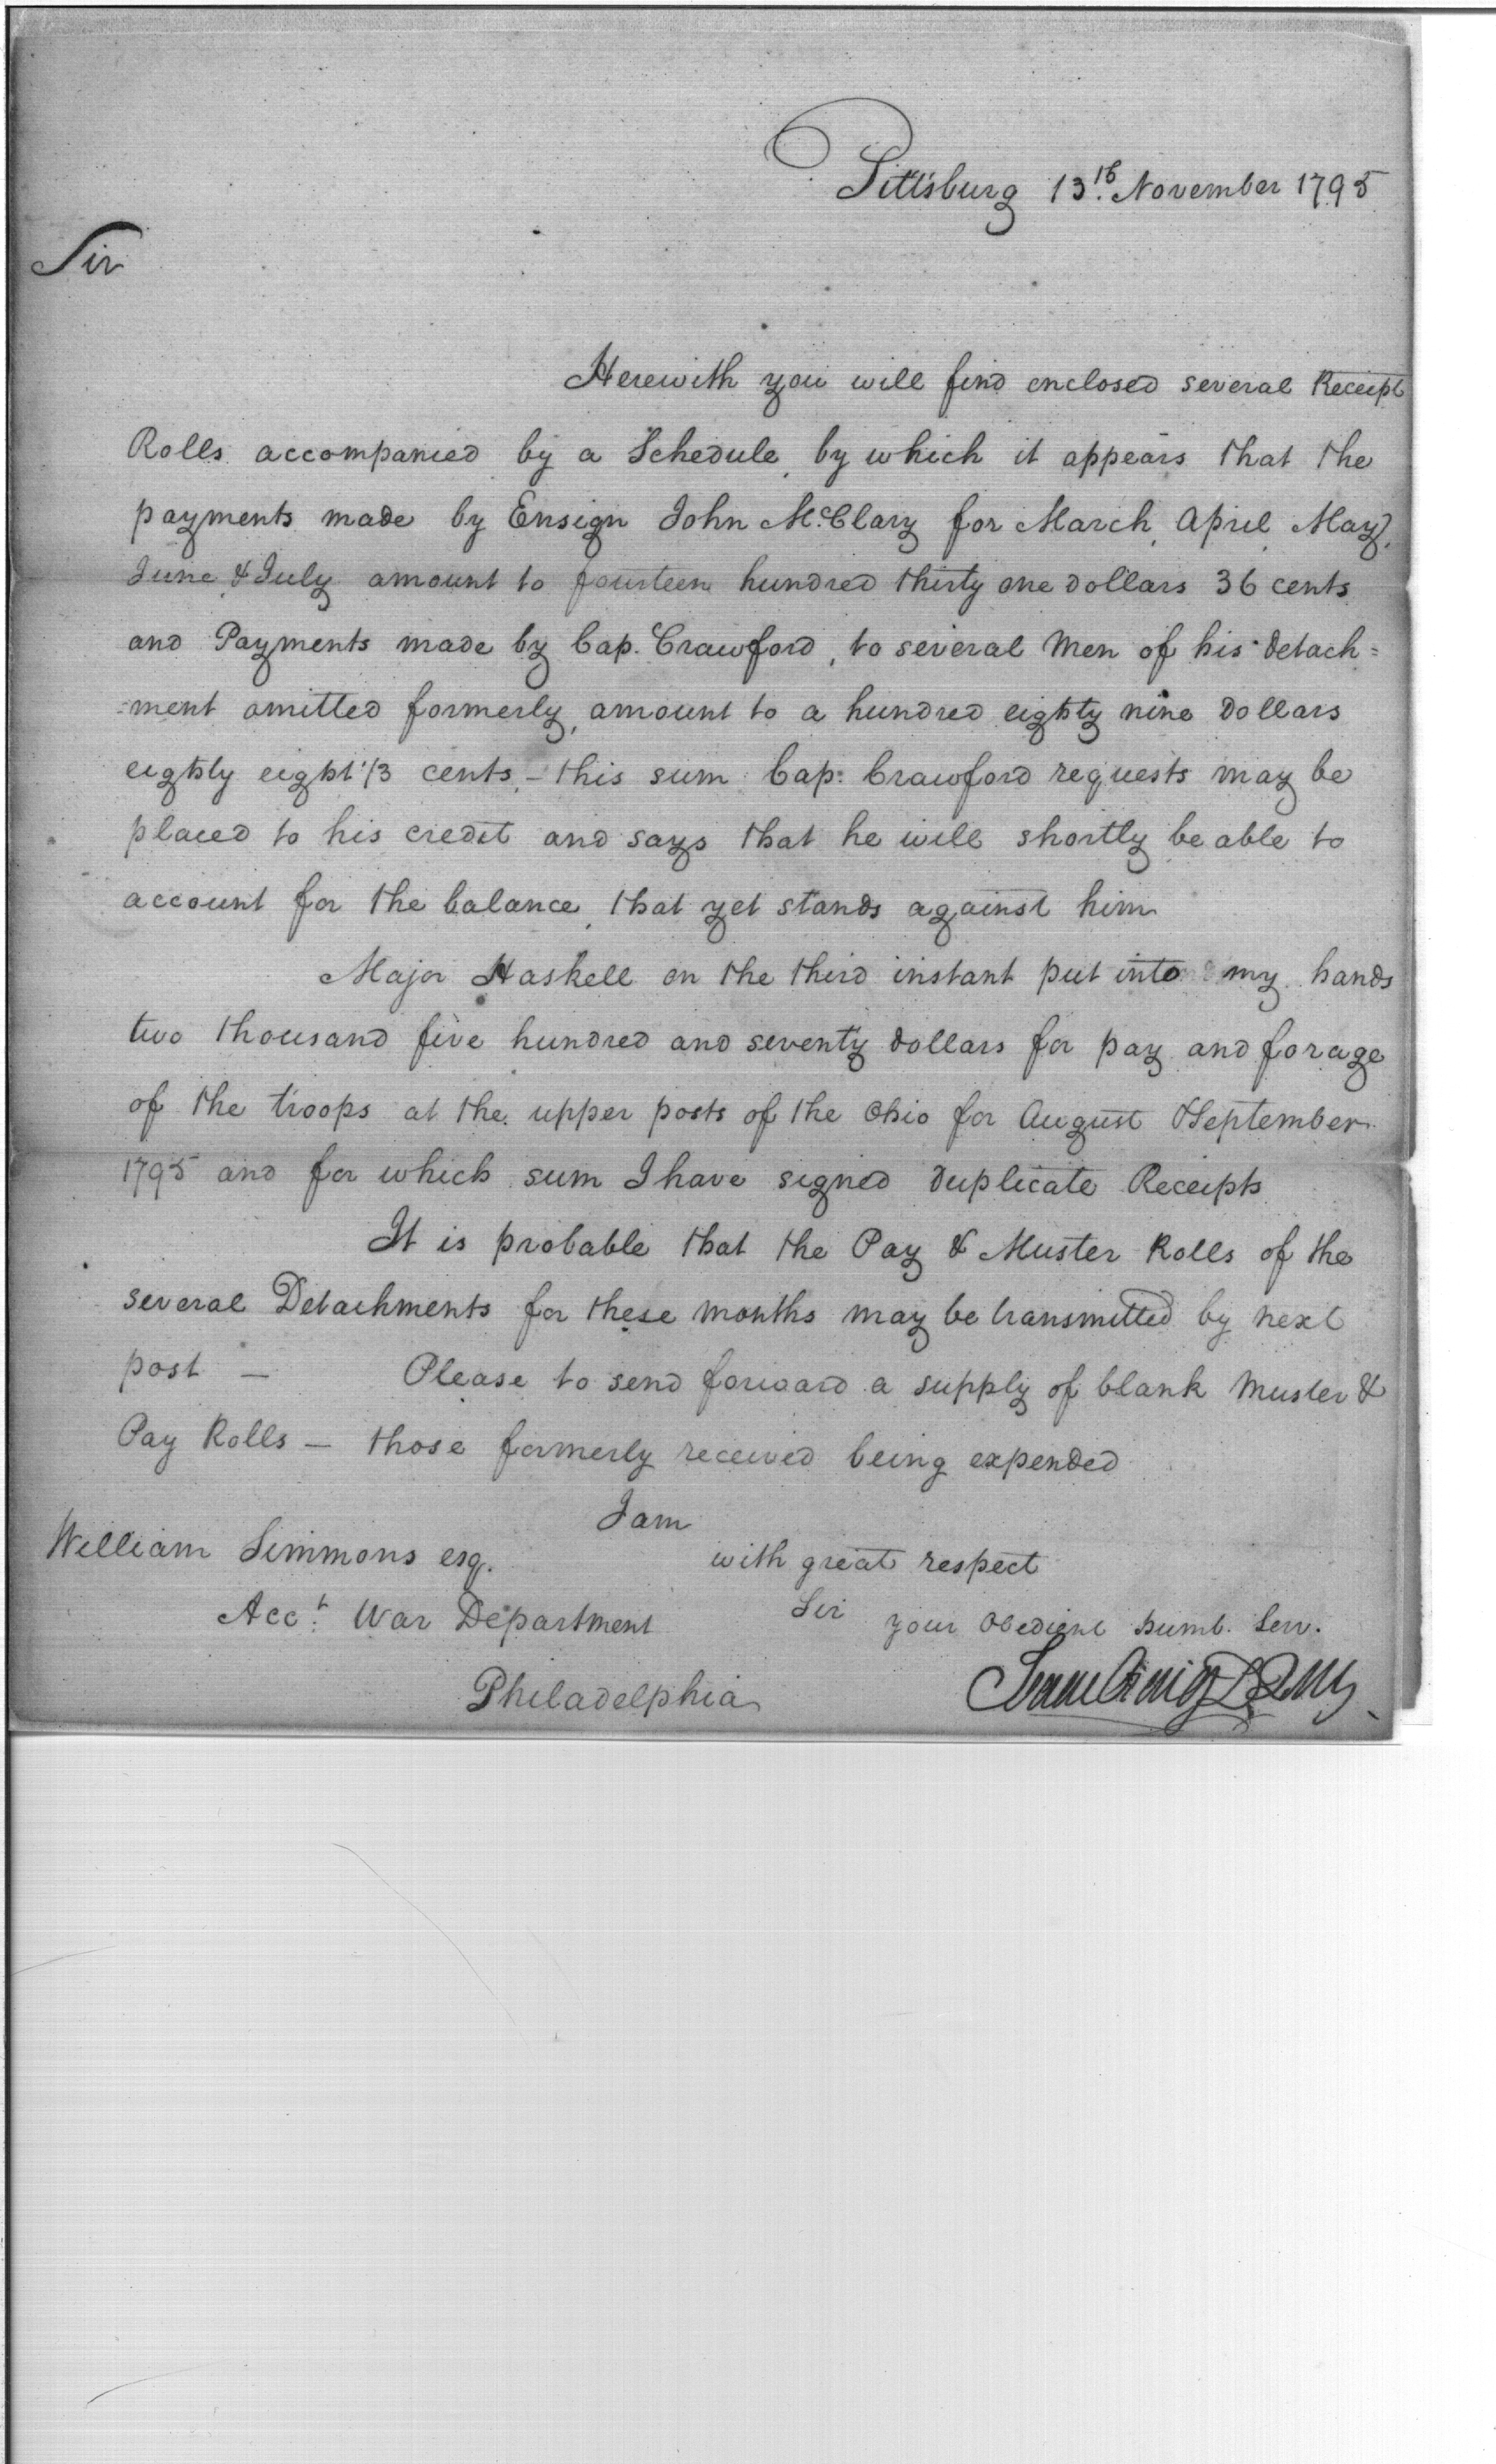 Pittsburg 13th. November 1795
Sir
Herewith you will find enclosed several Receipt
Rolls accompanied by a Schedule, by which it appears that the
payments made by Ensign John McClary for March, April, May,
June, & July amount to fourteen hundred thirty one dollars 36 cents
and Payments made by Cap. Crawford, to several Men of his detach=
=ment omitted formerly, amount to a hundred eighty nine Dollars
eighty eight 1/3 cents, - this sum Cap: Crawford requests may be
placed to his credit and says that he will shortly be able to
account for the balance, that yet stands against him
Major Haskell on the third instant put into my hands
two thousand five hundred and seventy dollars for pay and forage
of the troops at the upper posts of the Ohio for August & September
1795 and for which sum I have signed Duplicate Receipts
It is probable that the Pay & Muster Rolls of the
several Detachments for these months may be transmitted by next
post — Please to send forward a supply of blank Muster &
Pay Rolls — those formerly received being expended
I am
William Simmons esq. with great respect
Acct. War Department Sir your Obedient humb. Serv.
Philadelphia Isaac Craig